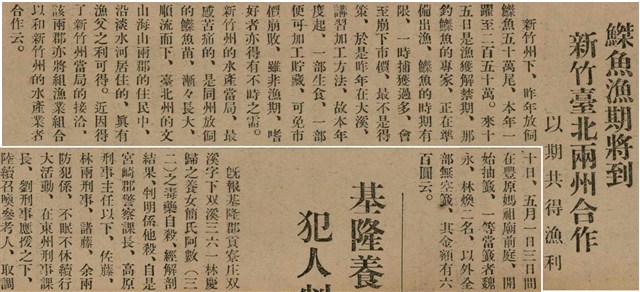 鰈魚漁期將到
新竹臺北兩州合作
以期共得漁利
新竹州下、昨年放飼
鰈魚五十萬尾、本年一
躍至二百五十萬。來十
五日是漁獲解禁期、那
釣鰈魚的專家、正在準
備出漁、鰈魚的時期有
限、一時捕獲過多、會
至崩下市價、最不是得
策、於是昨年在大溪、
講習加工方法、故本年
度起、一部生食、一部
便可加工貯藏、可免市
價崩敗、雖非漁期、嗜
好者亦得有不時之需。
新竹州的水產當局、最
感苦痛的、是同州放飼
的鰈魚苗、漸々長大、
順流而下、臺北州的文
山海山兩郡的住民中、
沿淡水河居住的、具有
漁父之利可得。近因得
了新竹州當局的接洽、
該兩郡亦將組漁業組合
以和新竹州的水產業者
合作云。
十日、五月一日三日間
在豐原媽祖廟前庭、開
始抽籤、一等當籤者魏
永、林煥二名、以外全
部無空籤、其金額有六
百圓云。
基隆養
犯人
既報基隆郡貢寮庄双
溪字下双溪三六一林慶
歸之養女簡氏阿數(三
二)之毒藥自殺、經解剖
結果、判明係他殺、自是
宮崎郡警察課長、高原
刑事主任以下、佐藤、
林兩刑事、諸藤、余兩
防犯係、不眠不休續行
大活動、在東州刑事課
長、劉刑事應援之下、
陸續召喚參考人、取調